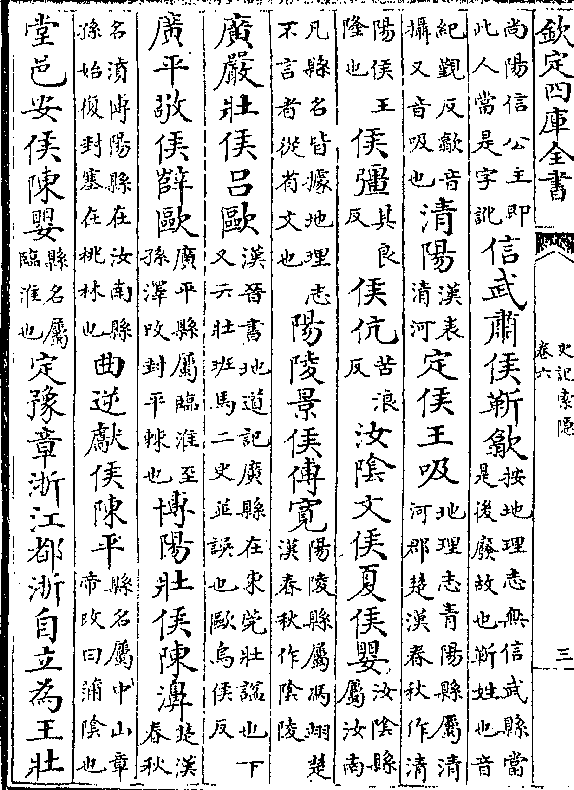 欽定四庫全書
史記索隱
卷六
三
尚陽信公主即
此人當是字訛
信武肅侯靳歙
按地理志無信武縣當
是後廢故也靳姓也音
紀覲反歙音
攝又音吸也
清陽
漢表
清河
定侯王吸
地理志青陽縣屬清
河郡楚漢春秋作清
陽侯王
隆也
侯彊
其良
反
侯伉
苦浪
反
汝陰文侯夏侯嬰
汝陰縣
屬汝南
凡縣名皆據地理志
不言者從省文也
陽陵景侯傅寛
陽陵縣屬馮翊楚
漢春秋作陰陵
廣嚴壯侯呂歐
漢晉書地道記廣縣在東莞壯諡也下
又云壯班馬二史並誤也歐烏侯反
廣平敬侯薛歐
廣平縣屬臨淮至
孫澤改封平棘也
博陽壯侯陳濞
楚漢
春秋
名濆博陽縣在汝南縣
孫始復封塞在桃林也
曲逆獻侯陳平
縣名屬中山章
帝改曰蒲陰也
堂邑安侯陳嬰
縣名屬
臨淮也
定豫章浙江都浙自立為王壯